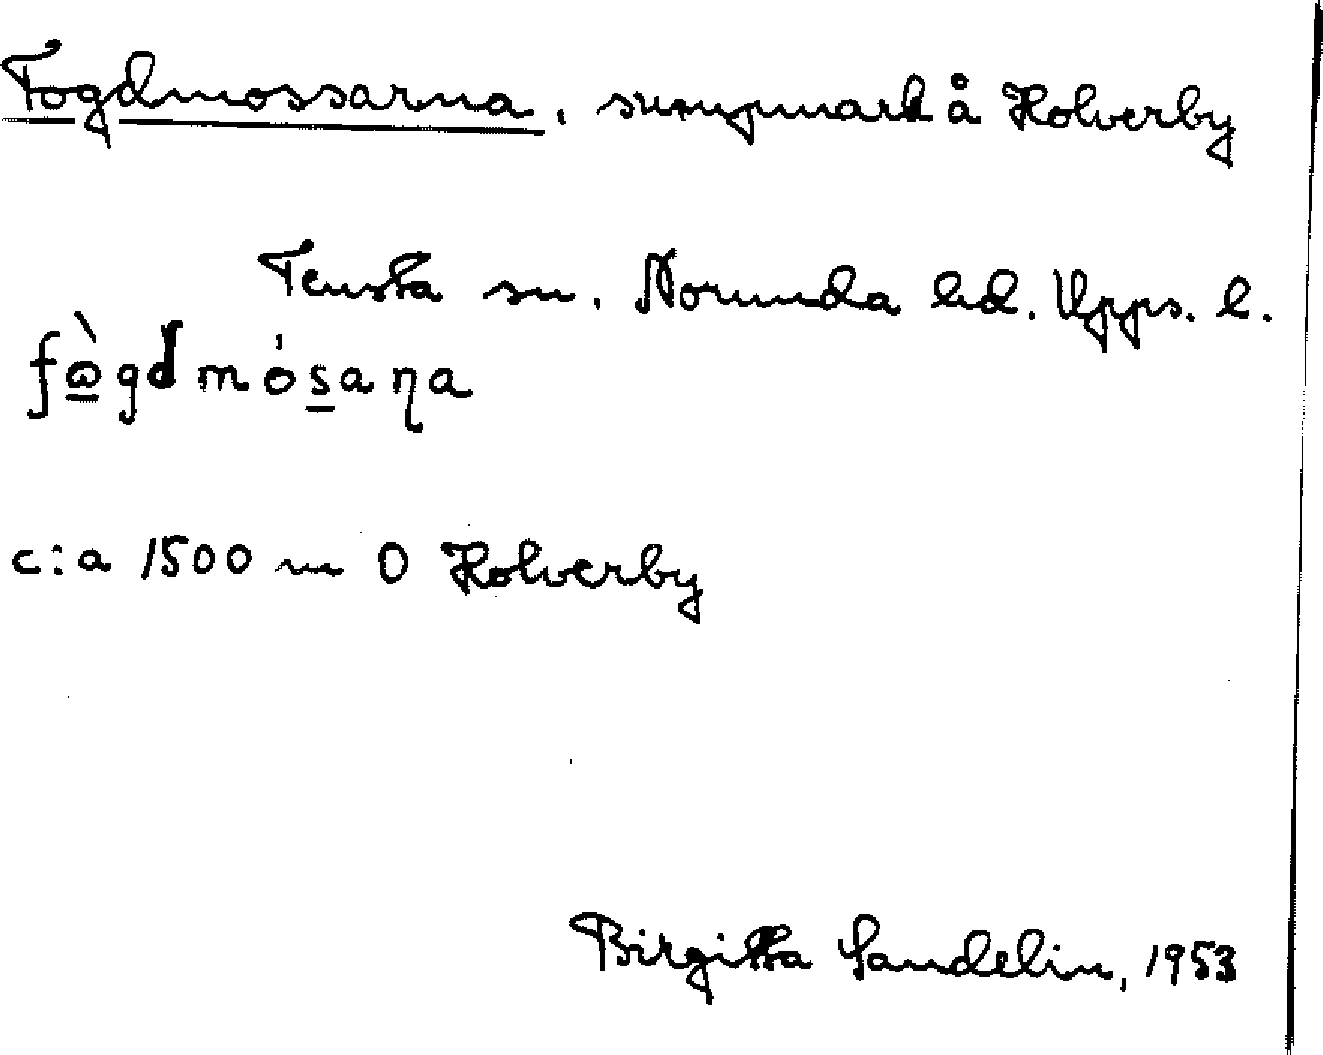 Fogdmossarna, sumpmark å Holverby
Tensta sn. Norunda hd. Upps. l.
c:a 1500 m O Holverby
Birgitta Sandelin, 1953